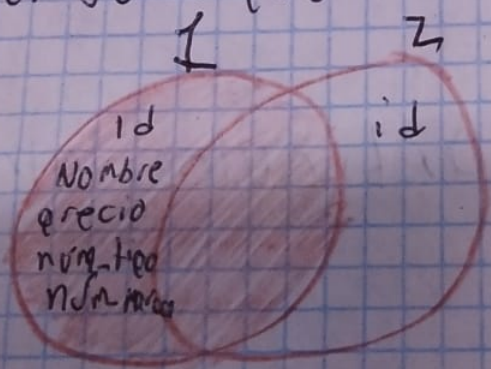 1 2
id id
Nombre
precio
núm_tipo
núm marca